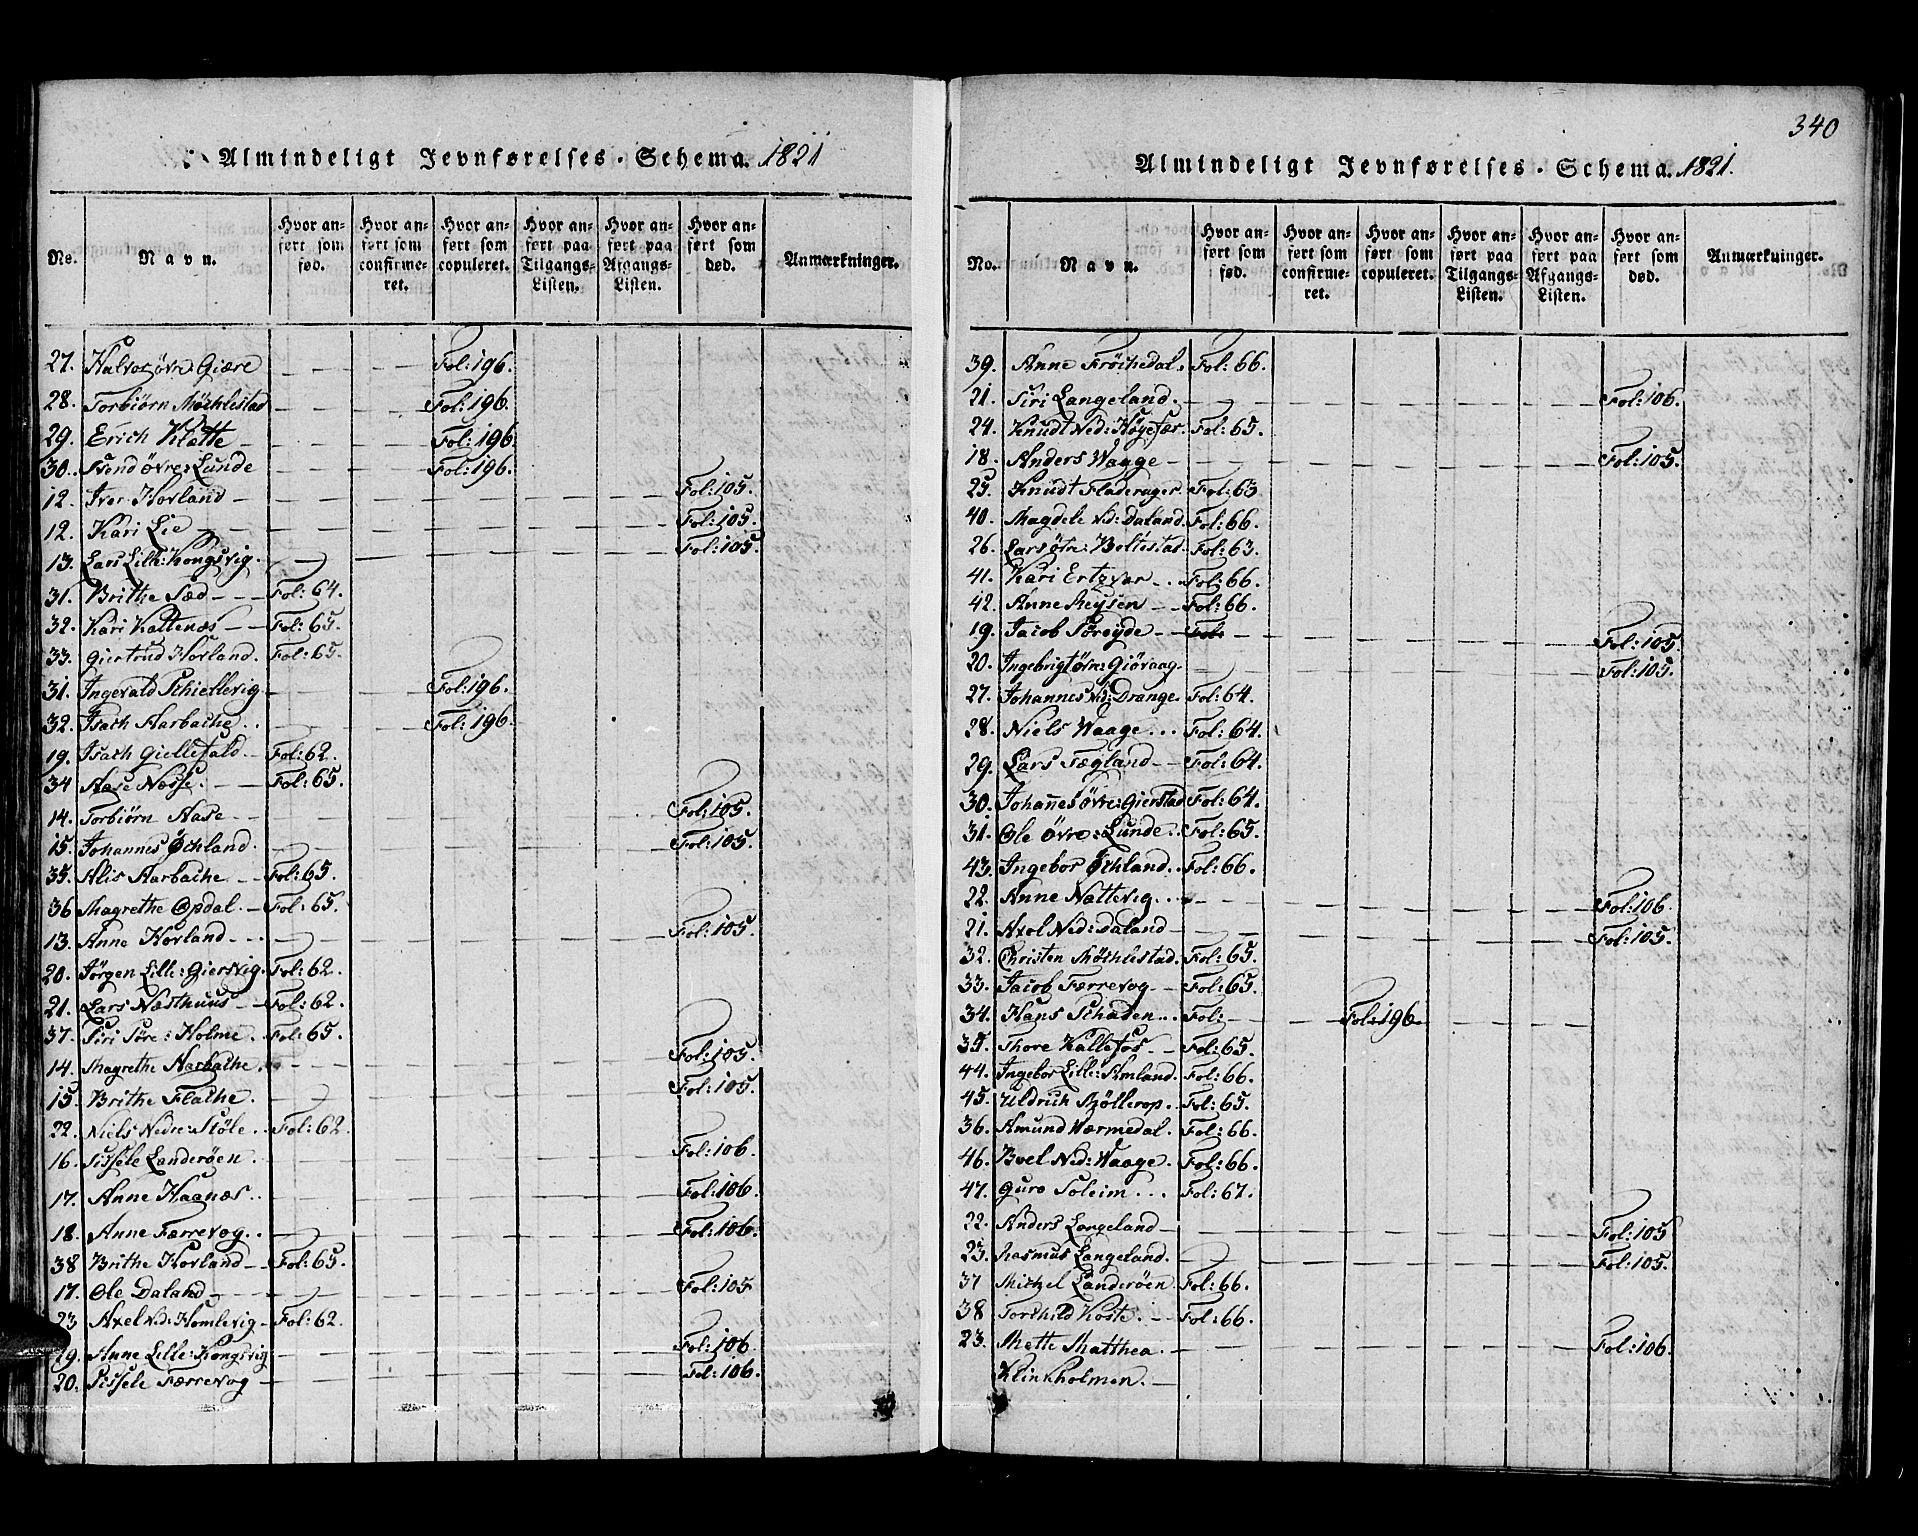 Almindeligt Jevnførelses-Schema. 1821
No.
Navn.
Hvor anført som fød.
Hvor anført som confirmeret.
Hvor anført som copuleret.
Hvor anført paa Tilgangs-Listen.
Hvor anført paa Afgangs-Listen.
Hvor anført som død.
Anmærkninger.
27. Halvor øvre: Giære Fol: 196.
28. Torbiörn Möchlestad Fol: 196.
29. Erich Klette Fol: 196
30. Svend övre: Lunde Fol: 196.
12. Iver Hovland Fol: 105.
12. Kari Lie Fol: 105.
13. Lars Lille: Kongsvig. Fol: 105.
31. Brithe Sæd Fol: 64.
32. Kari Kaltenæs Fol: 65.
33. Giertrud Hovland. Fol: 65.
31. Ingevald Schiellevig Fol: 196.
32. Isach Aarbache Fol: 196
19. Isach Giellefald Fol: 62.
34 Aase Næsse. Fol: 65.
14. Torbiörn Aase Fol: 105.
15. Johannes Øchland. Fol: 105.
35. Alis Aarbache Fol: 65.
36 Magrethe Opdal. Fol: 65.
13. Anne Hovland Fol: 105.
20. Jörgen Lille: Giersvig. Fol: 62.
21. Lars Næsthuus Fol: 62.
37. Siri Søre: Holme. Fol: 65.
14. Magrethe Aarbache. Fol: 105.
15. Brithe Flache. Fol: 105.
22. Niels Nedre: Støle. Fol: 62.
16. Sissele Landeröen. Fol: 106.
17. Anne Haanæs. Fol: 106.
18. Anne Færrevog. Fol: 106.
38 Brithe Hovland Fol: 65.
17. Ole Daland Fol: 105
23 Axel Ned: Homlevig Fol: 62.
19. Anne Lille: Kongsvig Fol: 106
20. Sissele Færrevog Fol: 106.
340
Almindeligt Jevnførelses-Schema. 1821.
No.
Navn.
Hvor anført som fød.
Hvor anført som confirmeret.
Hvor anført som copuleret.
Hvor anført paa Tilgangs-Listen.
Hvor anført paa Afgangs-Listen.
Hvor anført som død.
Anmærkninger.
39. Anne Fröchedal. Fol: 66.
21. Siri Langeland. Fol: 106.
24. Knudt Ned: Høgefær. Fol: 65.
18. Anders Waage Fol: 105.
25. Knudt Fladerager Fol: 63
40. Magdele Ned: Daland Fol: 66.
26. Lars øtre: Boltestad. Fol: 63.
41. Kari Ertzvar Fol: 66.
42. Anne Reysen Fol: 66.
19. Jacob Söröyde Fol: Fol: 105
20. Ingebrigt övre: Giövaag. Fol: 105.
27. Johannes Ned: Drange. Fol: 64.
28. Niels Waage Fol: 64.
29. Lars Tægland Fol: 64.
30. Johannes övre: Gierstad Fol: 64.
31. Ole Övre: Lunde. Fol: 65.
43. Ingebor Øchland. Fol: 66.
22. Anne Nattevig Fol: 106.
21. Axel Ned: Daland Fol: 105.
32. Christen Möchlestad. Fol: 65.
33. Jacob Færrevog Fol: 65.
34. Hans Schaden Fol: Fol: 196.
35. Thore Kallefos Fol: 65.
44. Ingebor Lille: Amland. Fol: 66.
45. Uldrich Møllerop. Fol: 65.
36. Amund Wærmedal. Fol: 66.
46. Boel Ned: Waage. Fol: 66.
47. Guro Soleim Fol: 67.
22. Anders Langeland Fol: 105
23. Rasmus Langeland. Fol: 105.
37 Michel Landeröen Fol: 66.
38 Torchild Koste. Fol: 66.
23. Mette Matthea. Fol: 106.
Klinkholmen.